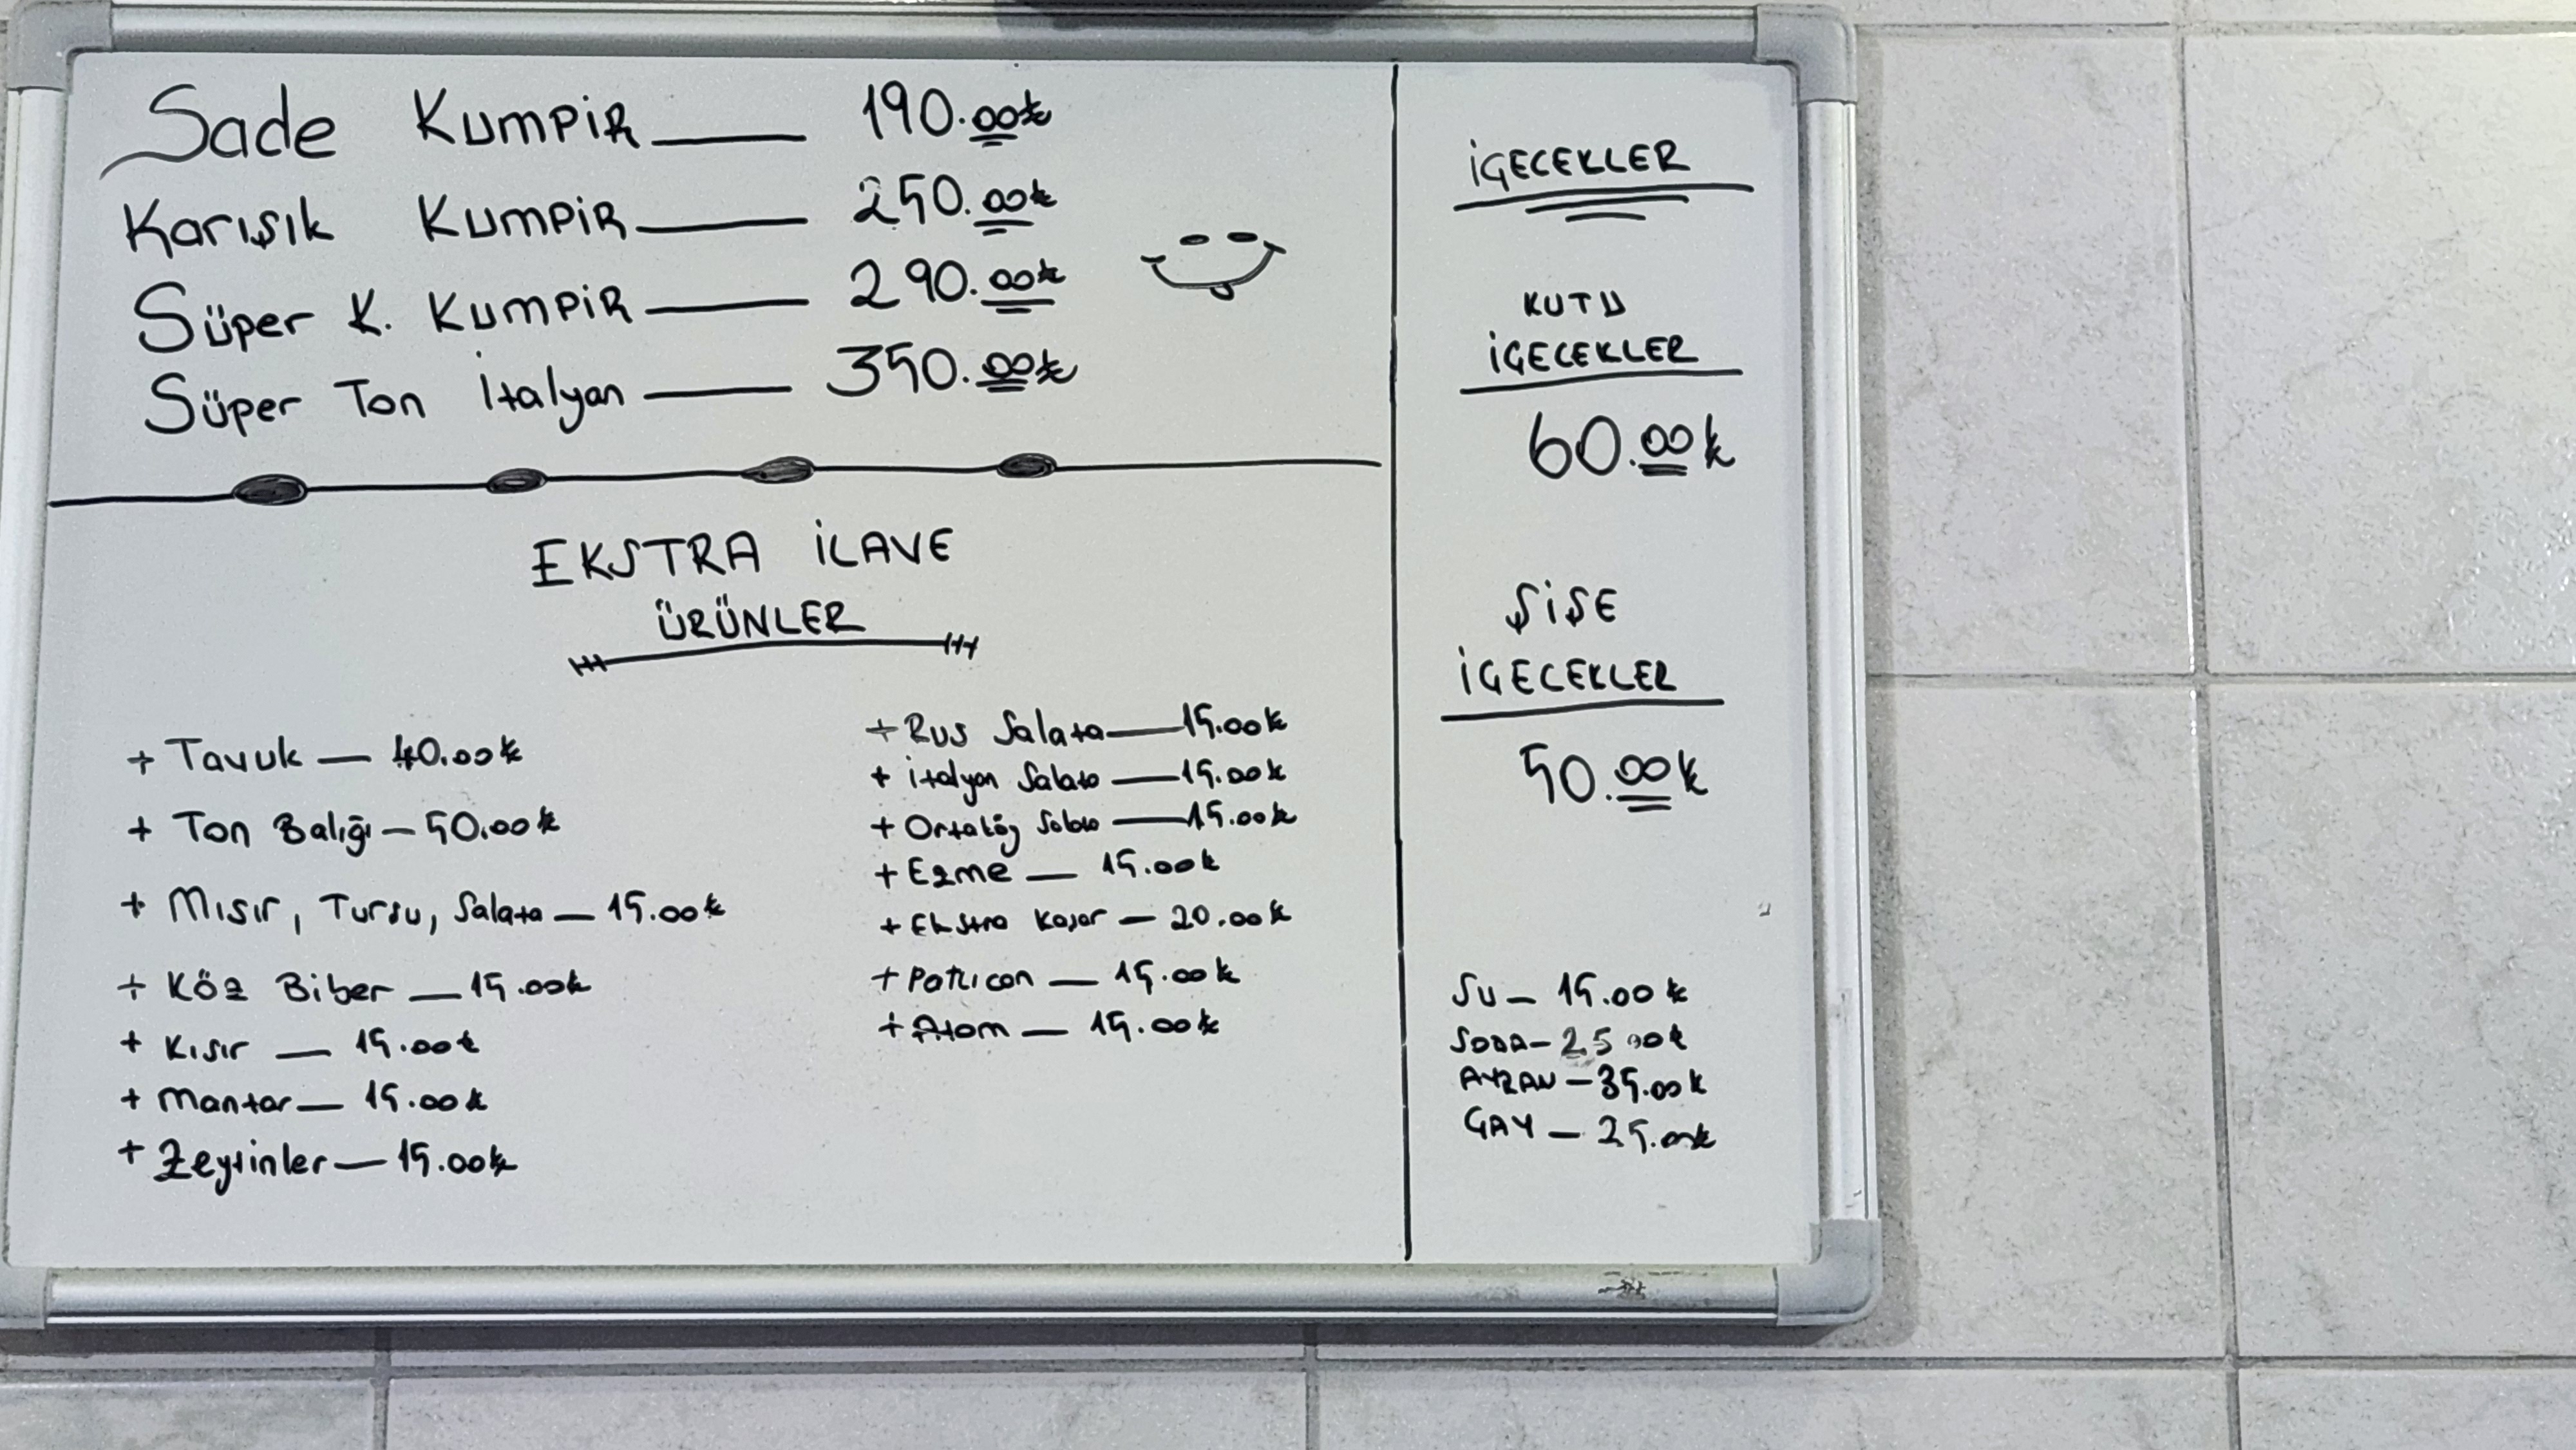 Sade Kumpir 190.00₺
Karışık Kumpir 250.00₺
Süper K. Kumpir 290.00₺
Süper Ton İtalyan 350.00₺
EKSTRA İLAVE
ÜRÜNLER
+ Tavuk — 40.00₺
+ Ton Balığı — 50.00₺
+ Mısır, Tursu, Salata — 15.00₺
+ Köz Biber — 15.00₺
+ Kısır — 15.00₺
+ Mantar — 15.00₺
+ Zeytinler — 15.00₺
+ Rus Salata — 15.00₺
+ italyan Salata — 15.00₺
+ Ortaköy Salata — 15.00₺
+ Ezme — 15.00₺
+ Ekstra Kaşar — 20.00₺
+ Patlıcan — 15.00₺
+ Atom — 15.00₺
İÇECEKLER
KUTU
İÇECEKLER
60.00₺
ŞİŞE
İÇECEKLER
50.00₺
SU — 15.00₺
SODA — 25.00₺
AYRAN — 35.00₺
ÇAY — 25.00₺